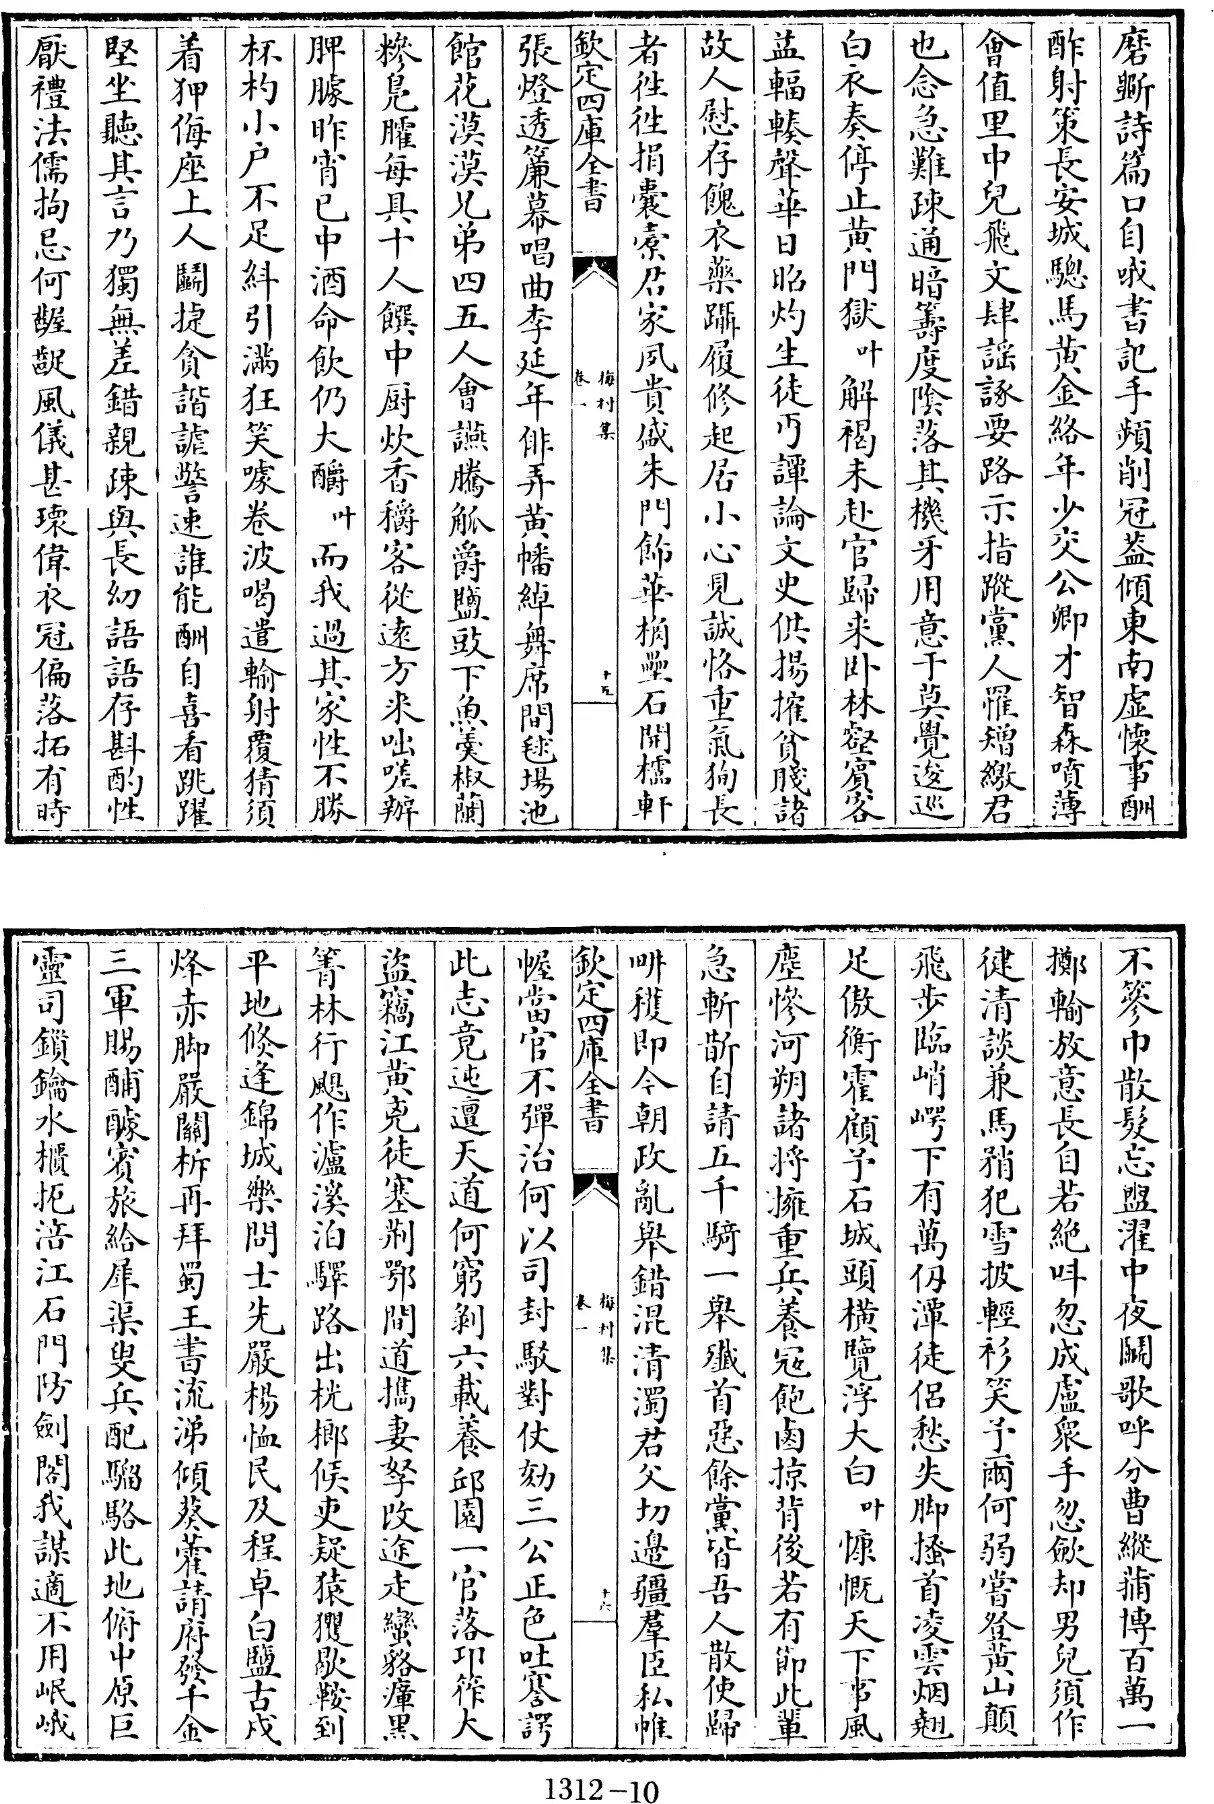 磨斷詩篇口自哦書記手頻削冠蓋傾東南虛懷事酬
酢射策長安城驄馬黃金絡年少交公卿才智森噴薄
會值里中兒飛文肆謡諑要路示指蹤黨人罹矰繳君
也念急難疎通暗籌度陰落其機牙用意于莫覺逡巡
白衣奏停止黃門獄叶解褐未赴官歸來卧林壑賓客
益輻輳聲華日昭灼生徒丐譚論文史供揚搉貧賤諸
故人慰存餽衣藥躡履修起居小心見誠恪重氣狥長
者徃徃捐囊橐君家夙貴盛朱門飾華桷壘石開櫺軒
欽定四庫全書
梅村集
卷一
十五
張燈透簾幕唱曲李延年俳弄黃幡綽舞席間毬場池
館花漠漠兄弟四五人會讌騰觚爵鹽豉下魚羮椒蘭
糝鳬臛每具十人饌中厨炊香穱客從遠方來咄嗟辦
脾臄昨宵已中酒命飲仍大釂叶而我過其家性不勝
杯杓小户不足糾引滿狂笑噱卷波喝遣輸射覆猜須
着狎侮座上人鬬捷貪諧謔警速誰能酬自喜看跳躍
堅坐聽其言乃獨無差錯親疎與長幼語語存斟酌性
厭禮法儒拘忌何齷齪風儀甚瓌偉衣冠偏落拓有時
不簪巾散髮忘盥濯中夜鬬歌呼分曹縱蒱博百萬一
擲輸放意長自若絶呌忽成盧衆手忽斂却男兒須作
健清談兼馬矟犯雪披輕衫笑予爾何弱嘗登黃山顛
飛步臨峭崿下有萬仭潭徒侣愁失脚搔首凌雲烟翹
足傲衡霍顧予石城頭横覽浮大白叶慷慨天下事風
塵慘河朔諸將擁重兵養冦飽鹵掠背後若有節此輩
急斬斮自請五千騎一舉殱首惡餘黨皆吾人散使歸
畊穫即今朝政亂舉錯混清濁君父切邉疆羣臣私帷
欽定四庫全書
梅村集
卷一
十六
幄當官不彈治何以司封駁對仗劾三公正色吐謇諤
此志竟迍邅天道何窮剝六載養邱園一官落邛筰大
盜竊江黃兇徒塞荆鄂間道攜妻孥改途走蠻貉瘴黑
箐林行颶作瀘溪泊驛路出桄榔候吏疑猿玃歇鞍到
平地倐逢錦城樂問士先嚴楊恤民及程卓白鹽古戍
烽赤脚嚴關柝再拜蜀王書流涕傾葵藿請府發千金
三軍賜酺醵賓旅給犀渠叟兵配騮駱此地俯中原巨
靈司鎖鑰水櫃扼涪江石門防劍閣我謀適不用岷峨
1312-10